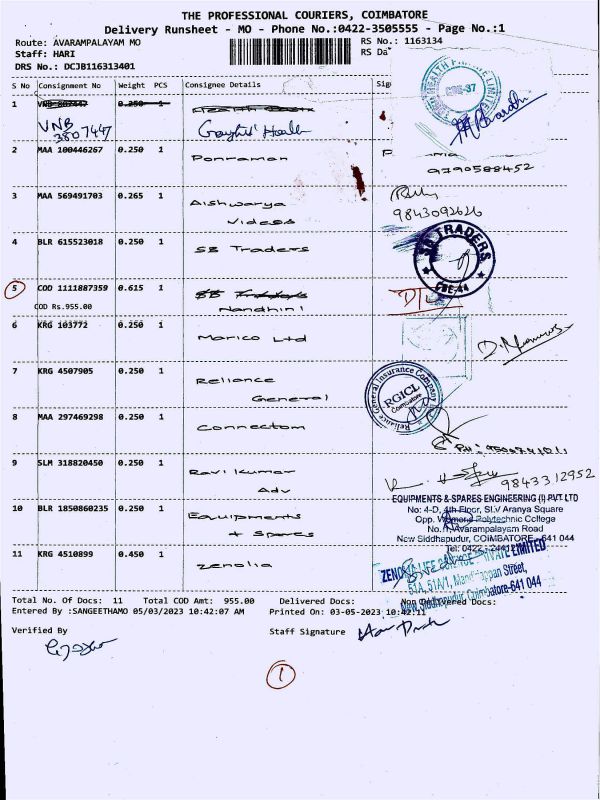 THE PROFESSIONAL COURIERS, COIMBATORE
Delivery Runsheet - MO - Phone No.:0422-3505555 - Page No.:1
Route: AVARAMPALAYAM MO
RS No.: 1163134
Staff: HARI
RS Da
DRS No.: DCJB116313401
S No Consignment No Weight PCS Consignee Details Sig
1 VNB 807447 0.250 1
VNB
3807447
2 MAA 100446267 0.250 1 Ponraman
9790588452
3 MAA 569491703 0.265 1 Aishwarya
Videos
9843092626
4 BLR 615523018 0.250 1 SB Traders
SB TRADERS
CBE-44
5 COD 1111887359 0.615 1 SB Traders
Nandhini
COD Rs.955.00
6 KRG 103772 0.250 1 Marico Ltd
7 KRG 4507905 0.250 1 Reliance
General
Reliance General Insurance Company
RGICL
Coimbatore
8 MAA 297469298 0.250 1 Connectom
9 SLM 318820450 0.250 1 Ravi Kumar
Adv
9843312952
10 BLR 1850860235 0.250 1 Equipments
+ Spares
EQUIPMENTS & SPARES ENGINEERING (I) PVT LTD
No: 4-D, 4th Floor, SLV Aranya Square
Opp. Womens Polytechnic College
No.1, Avarampalayam Road
New Siddhapudur, COIMBATORE-641 044
Tel: 0422
11 KRG 4510899 0.450 1 Zenolia
PRIVATE LIMITED
51A, 51A/1,
Street,
New Siddhapudur, Coimbatore-641 044
Total No. Of Docs: 11 Total COD Amt: 955.00 Delivered Docs: Non Delivered Docs:
Entered By :SANGEETHAMO 05/03/2023 10:42:07 AM Printed On: 03-05-2023 10:42:11
Verified By Staff Signature
1